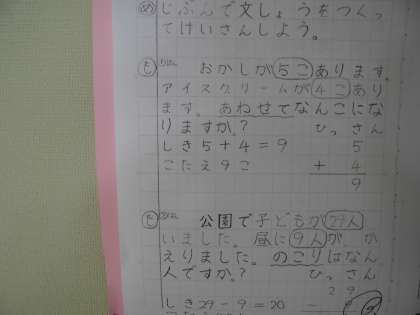 め じぶんで文しょうをつくっ
てけいさんしよう。
も おかしが5こあります。
アイスクリームが4こあり
ます。あわせてなんこにな
りますか。? ひっさん
しき5+4=9 5
こたえ9こ + 4
9
公園で子どもが29人
いました。昼に9人が、か
えりました。のこりはなん
人ですか。? ひっさん
2 9
しき29-9=20 -